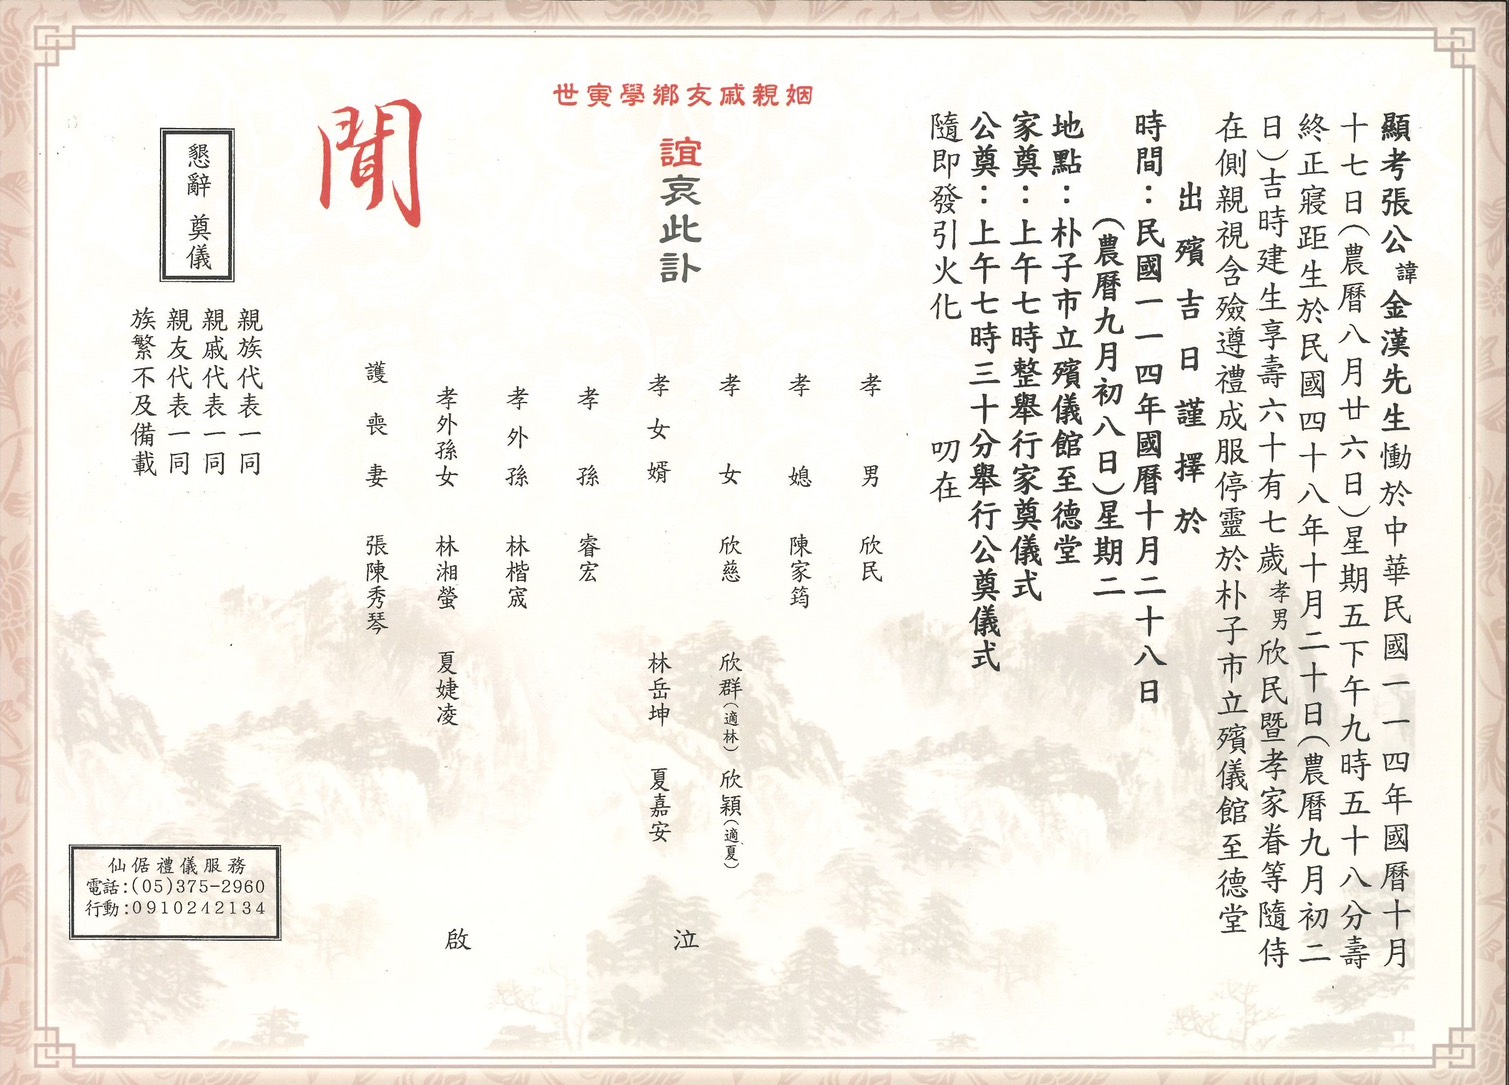 顯考張公諱金漢先生慟於中華民國一一四年國曆十月
十七日(農曆八月廿六日)星期五下午九時五十八分壽
終正寢距生於民國四十八年十月二十日(農曆九月初二
日)吉時建生享壽六十有七歲孝男欣民暨孝家眷等隨侍
在側親視含殮遵禮成服停靈於朴子市立殯儀館至德堂
出殯吉日謹擇於
時間：民國一一四年國曆十月二十八日
(農曆九月初八日)星期二
地點：朴子市立殯儀館至德堂
家奠：上午七時整舉行家奠儀式
公奠：上午七時三十分舉行公奠儀式
隨即發引火化 叨在
姻親戚友鄉學寅世
誼哀此訃
聞
孝男 欣民
孝媳 陳家筠
孝女 欣慈 欣群(適林) 欣穎(適夏)
孝女婿 林岳坤 夏嘉安
孝孫 睿宏
孝外孫 林楷宬
孝外孫女 林湘螢 夏婕凌
護喪妻 張陳秀琴
泣
啟
懇辭 奠儀
親族代表一同
親戚代表一同
親友代表一同
族繁不及備載
仙倨禮儀服務
電話:(05)375-2960
行動:0910242134